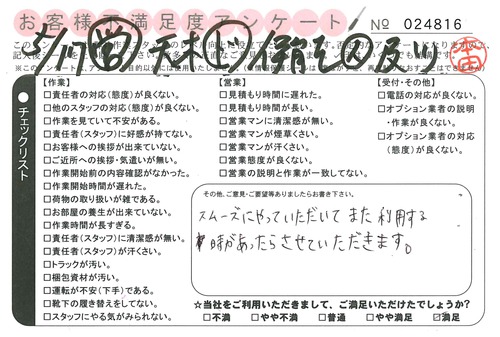 お客様不満足度アンケート
No 024816
5/17
チェックリスト
【作業】
□責任者の対応(態度)が良くない。
□他のスタッフの対応(態度)が良くない。
□作業を見ていて不安がある。
□責任者(スタッフ)に好感が持てない。
□お客様への挨拶が出来ていない。
□ご近所への挨拶・気遣いが無い。
□作業開始前の内容確認がなかった。
□作業開始時間が遅れた。
□荷物の取り扱いが雑である。
□お部屋の養生が出来ていない。
□作業時間が長すぎる。
□責任者(スタッフ)に清潔感が無い。
□責任者(スタッフ)が汗くさい。
□トラックが汚い。
□梱包資材が汚い。
□運転が不安(下手)である。
□靴下の履き替えをしてない。
□スタッフにやる気がみられない。
【営業】
□見積もり時間に遅れた。
□見積もり時間が長い。
□営業マンに清潔感が無い。
□営業マンが煙草くさい。
□営業マンが汗くさい。
□営業態度が良くない。
□営業の説明と作業が一致してない。
【受付・その他】
□電話の対応が良くない。
□オプション業者の説明
・作業が良くない。
□オプション業者の対応
(態度)が良くない。
その他、ご意見・ご要望等ありましたらお書き下さい。
スムーズにやっていただいて また 利用する
時があったらさせていただきます。
☆当社をご利用いただきまして、ご満足いただけたでしょうか?
□不満 □やや不満 □普通 □やや満足 ☑満足